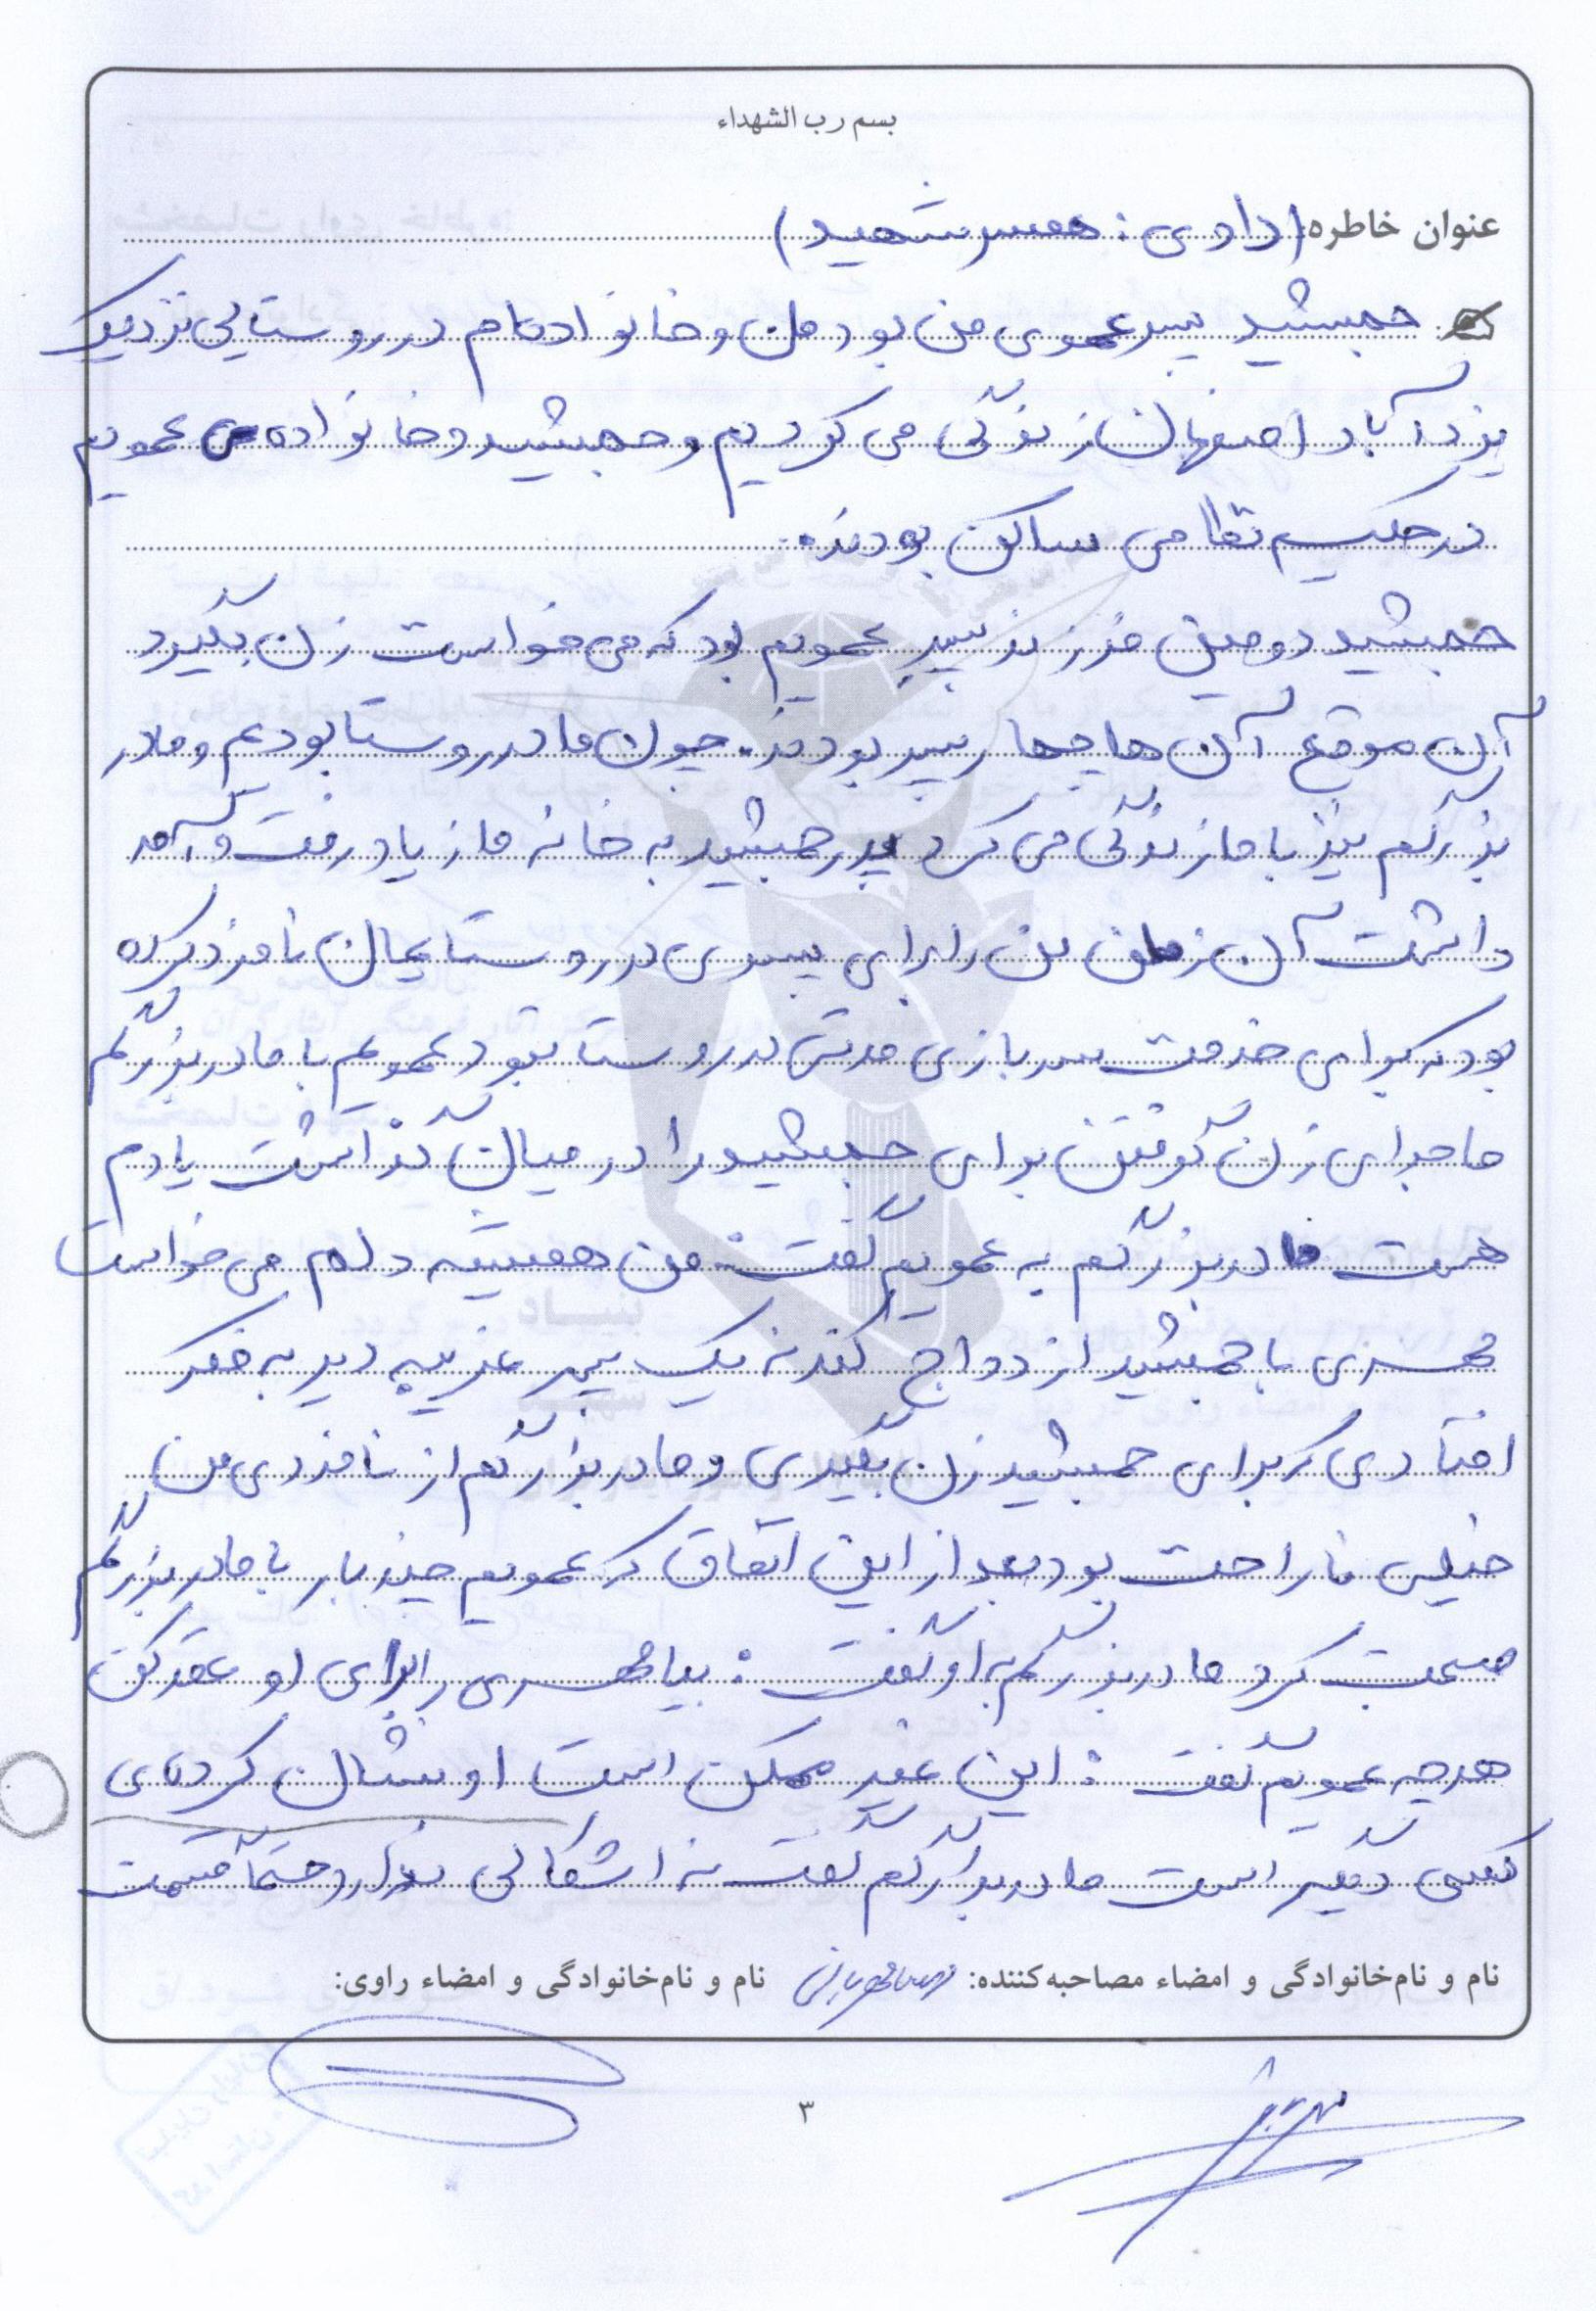 بسم رب الشهداء
عنوان خاطره: (راوی: همسر شهید)
جمشید پسرعموی من بود من و خانواده‌ام در روستایی نزدیک
یزدآباد اصفهان زندگی می کردیم و جمشید و خانواده‌ی عمویم
در حکیم نظامی ساکن بودند.
جمشید دومین فرزند پسر عمویم بود که می خواست زن بگیرد
آن موقع آن ها چهار پسر بودند. چون ما در روستا بودیم و مادر
بزرگم نیز با ما زندگی می کرد پدر جمشید به خانه ما زیاد رفت و آمد
داشت آن زمان من را برای پسری در روستایمان نامزد کرده
بود که برای خدمت سربازی مدتی در روستا نبود عمویم با مادربزرگم
ماجرای زن گرفتن برای جمشید را در میان گذاشت یادم
هست مادربزرگم به عمویم گفت: من همیشه دلم می خواست
مهری با جمشید ازدواج کند نه یک پسر غریبه دیر به فکر
افتادی که برای جمشید زن بگیری و مادربزرگم از نامزدی من
خیلی ناراحت بود بعد از این اتفاق که عمویم چند بار با مادربزرگم
صحبت کرد مادربزرگم به او گفت: بیا مهری را برای او عقد کن
هرچه عمویم گفت: این غیر ممکن است او نشان کرده‌ی
کسی دیگر است مادربزرگم گفت نه اشکالی ندارد حتماً قسمت
نام و نام‌خانوادگی و امضاء مصاحبه‌کننده: نام و نام‌خانوادگی و امضاء راوی:
۳